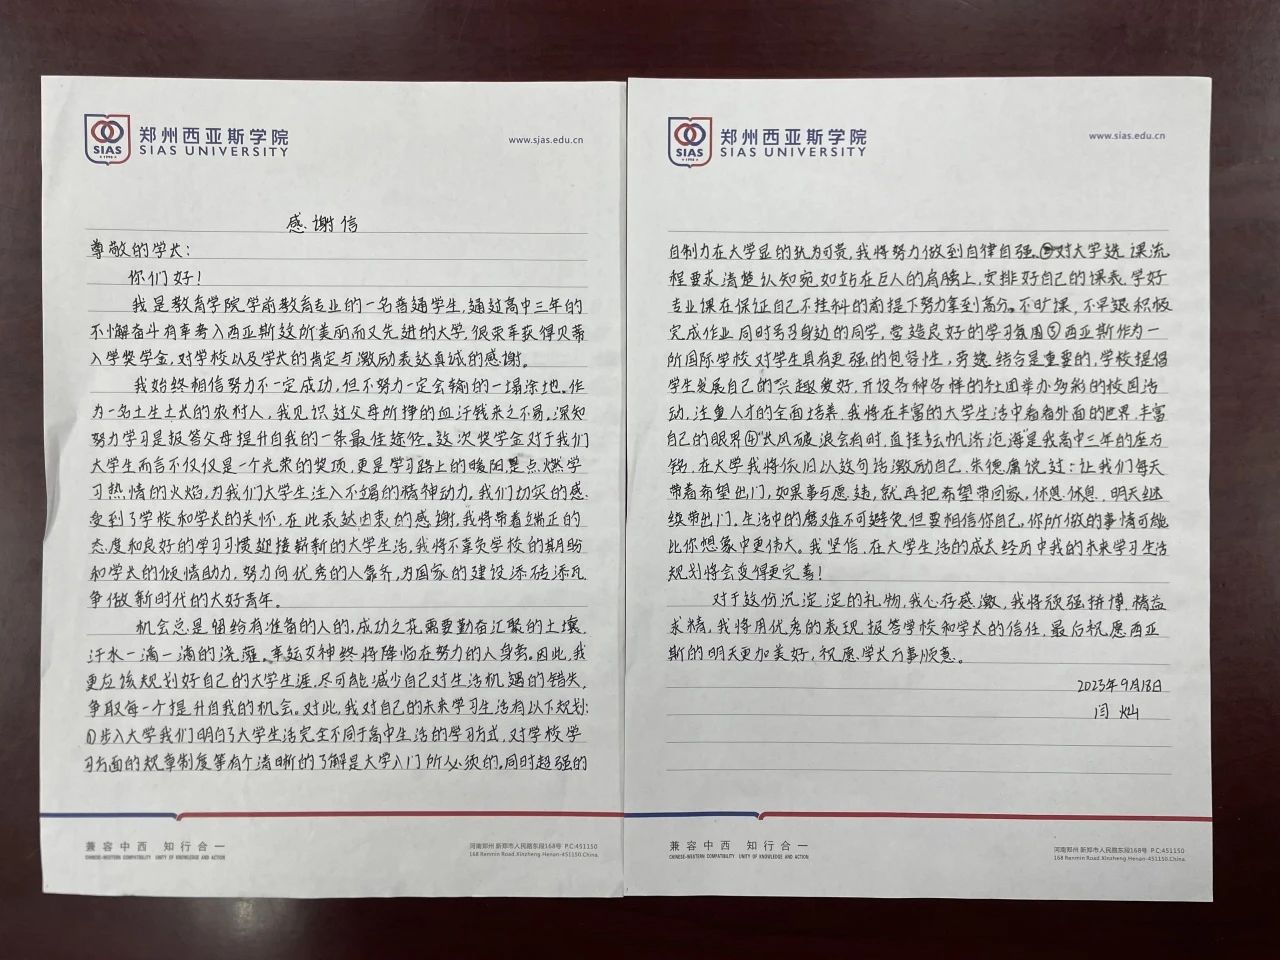 郑州西亚斯学院
SIAS UNIVERSITY
SIAS
1998
www.sias.edu.cn
感谢信
尊敬的学长：
你们好！
我是教育学院学前教育专业的一名普通学生，通过高中三年的
不懈奋斗有幸考入西亚斯这所美丽而又先进的大学，很荣幸获得贝蒂
入学奖学金，对学校以及学长的肯定与激励表达真诚的感谢。
我始终相信努力不一定成功，但不努力一定会输的一塌涂地。作
为一名土生土长的农村人，我见识过父母所挣的血汗钱来之不易，深知
努力学习是报答父母提升自我的一条最佳途径。这次奖学金对于我们
大学生而言不仅仅是一个光荣的奖项，更是学习路上的暖阳，是点燃学
习热情的火焰，为我们大学生注入不竭的精神动力。我们切实的感
受到了学校和学长的关怀，在此表达由衷的感谢，我将带着端正的
态度和良好的学习习惯迎接崭新的大学生活，我将不辜负学校的期盼
和学长的倾情助力，努力向优秀的人靠齐，为国家的建设添砖添瓦
争做新时代的大好青年。
机会总是留给有准备的人的，成功之花需要勤奋汇聚的土壤，
汗水一滴一滴的浇灌，幸运女神终将降临在努力的人身旁。因此，我
更应该规划好自己的大学生涯，尽可能减少自己对生活机遇的错失，
争取每一个提升自我的机会。对此，我对自己的未来学习生活有以下规划：
①步入大学我们明白了大学生活完全不同于高中生活的学习方式，对学校学
习方面的规章制度等有个清晰的了解是大学入门所必须的，同时超强的
兼容中西 知行合一
CHINESE-WESTERN COMPATIBILITY UNITY OF KNOWLEDGE AND ACTION
河南郑州 新郑市人民路东段168号 P.C:451150
168 Renmin Road.Xinzheng.Henan-451150.China.
郑州西亚斯学院
SIAS UNIVERSITY
SIAS
1998
www.sias.edu.cn
自制力在大学显的犹为可贵，我将努力做到自律自强。②对大学选课流
程要求清楚认知宛如站在巨人的肩膀上，安排好自己的课表，学好
专业课在保证自己不挂科的前提下努力拿到高分。不旷课，不早退积极
完成作业，同时号召身边的同学，营造良好的学习氛围③西亚斯作为一
所国际学校对学生具有更强的包容性，劳逸结合是重要的，学校提倡
学生发展自己的兴趣爱好，开设各种各样的社团举办多彩的校园活
动，注重人才的全面培养，我将在丰富的大学生活中看看外面的世界，丰富
自己的眼界④“长风破浪会有时，直挂云帆济沧海”是我高中三年的座右
铭，在大学我将依旧以这句话激励自己，朱德庸说过：让我们每天
带着希望出门，如果事与愿违，就再把希望带回家，休息休息，明天继
续带出门。生活中的磨难不可避免但要相信你自己，你所做的事情可能
比你想象中更伟大。我坚信，在大学生活的成长经历中我的未来学习生活
规划将会变得更完善！
对于这份沉淀淀的礼物，我心存感激，我将顽强拼搏，精益
求精，我将用优秀的表现报答学校和学长的信任，最后祝愿西亚
斯的明天更加美好，祝愿学长万事顺意。
2023年9月18日
闫灿
兼容中西 知行合一
CHINESE-WESTERN COMPATIBILITY UNITY OF KNOWLEDGE AND ACTION
河南郑州 新郑市人民路东段168号 P.C:451150
168 Renmin Road.Xinzheng.Henan-451150.China.